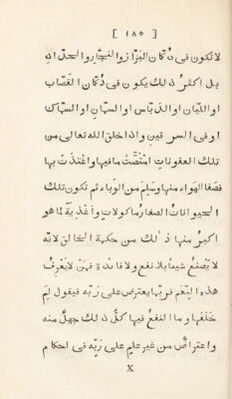 [ ١٨٥ ]
لا تكون فى دكان البزاز والنجار والحداد
بل اكثر ذلك يكون فى دكان القصاب
او اللبان او الدباس او السمان او السماك
او فى السرقين واذا خلق الله تعالى من
تلك العفونات امتصّت ما فيها واغتذت بها
فصفا الهواء منها وسلم من الوباء ثم تكون تلك
الحيوانات الصغار مأكولات واغذية لما هو
اكبر منها ذلك من حكمة الخالق لانه
لا يصنع شيئا بلا نفع ولا فائدة فمن لا يعرف
هذه النعم فربما يعترض على ربّه فيقول لم
خلقها وما النفع فيها كلّ ذلك جهل منه
واعتراض من غير علم على ربّه فى احكام
X